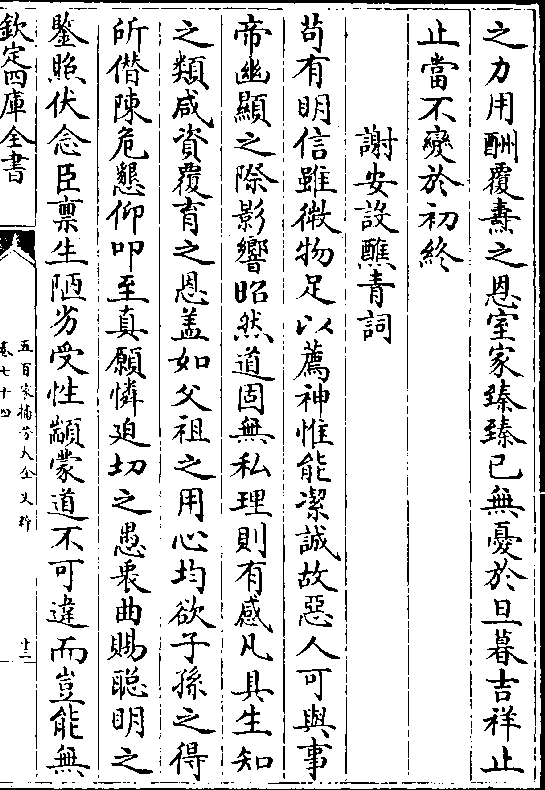 之力用酬覆燾之恩室家臻臻已無憂於旦暮吉祥止
止當不變於初終
謝安設醮青詞
苟有明信雖微物足以薦神惟能潔誠故惡人可與事
帝幽顯之際影響昭然道固無私理則有感凡具生知
之類咸資覆育之恩盖如父祖之用心均欲子孫之得
所僣陳危懇仰叩至真願憐迫切之愚衷曲賜聡明之
鑒照伏念臣禀生陋劣受性顓蒙道不可違而豈能無
欽定四庫全書
五百家播芳大全文粹
卷七十四
十二